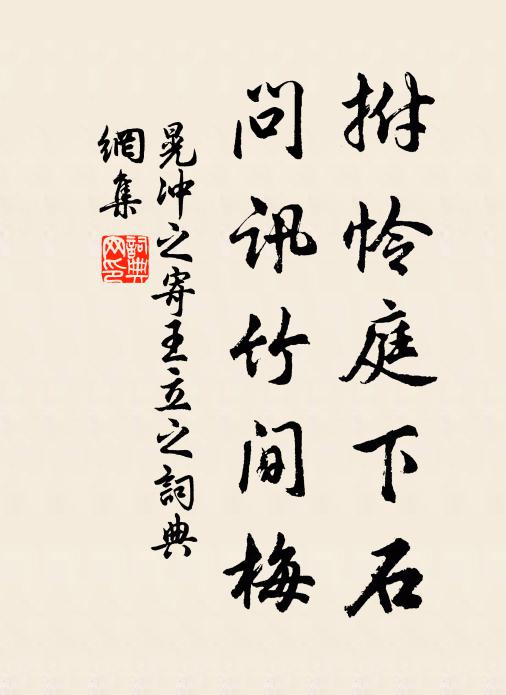 拊怜庭下石
问讯竹间梅
晁冲之寄王立之詞典
網集
詞典
网印